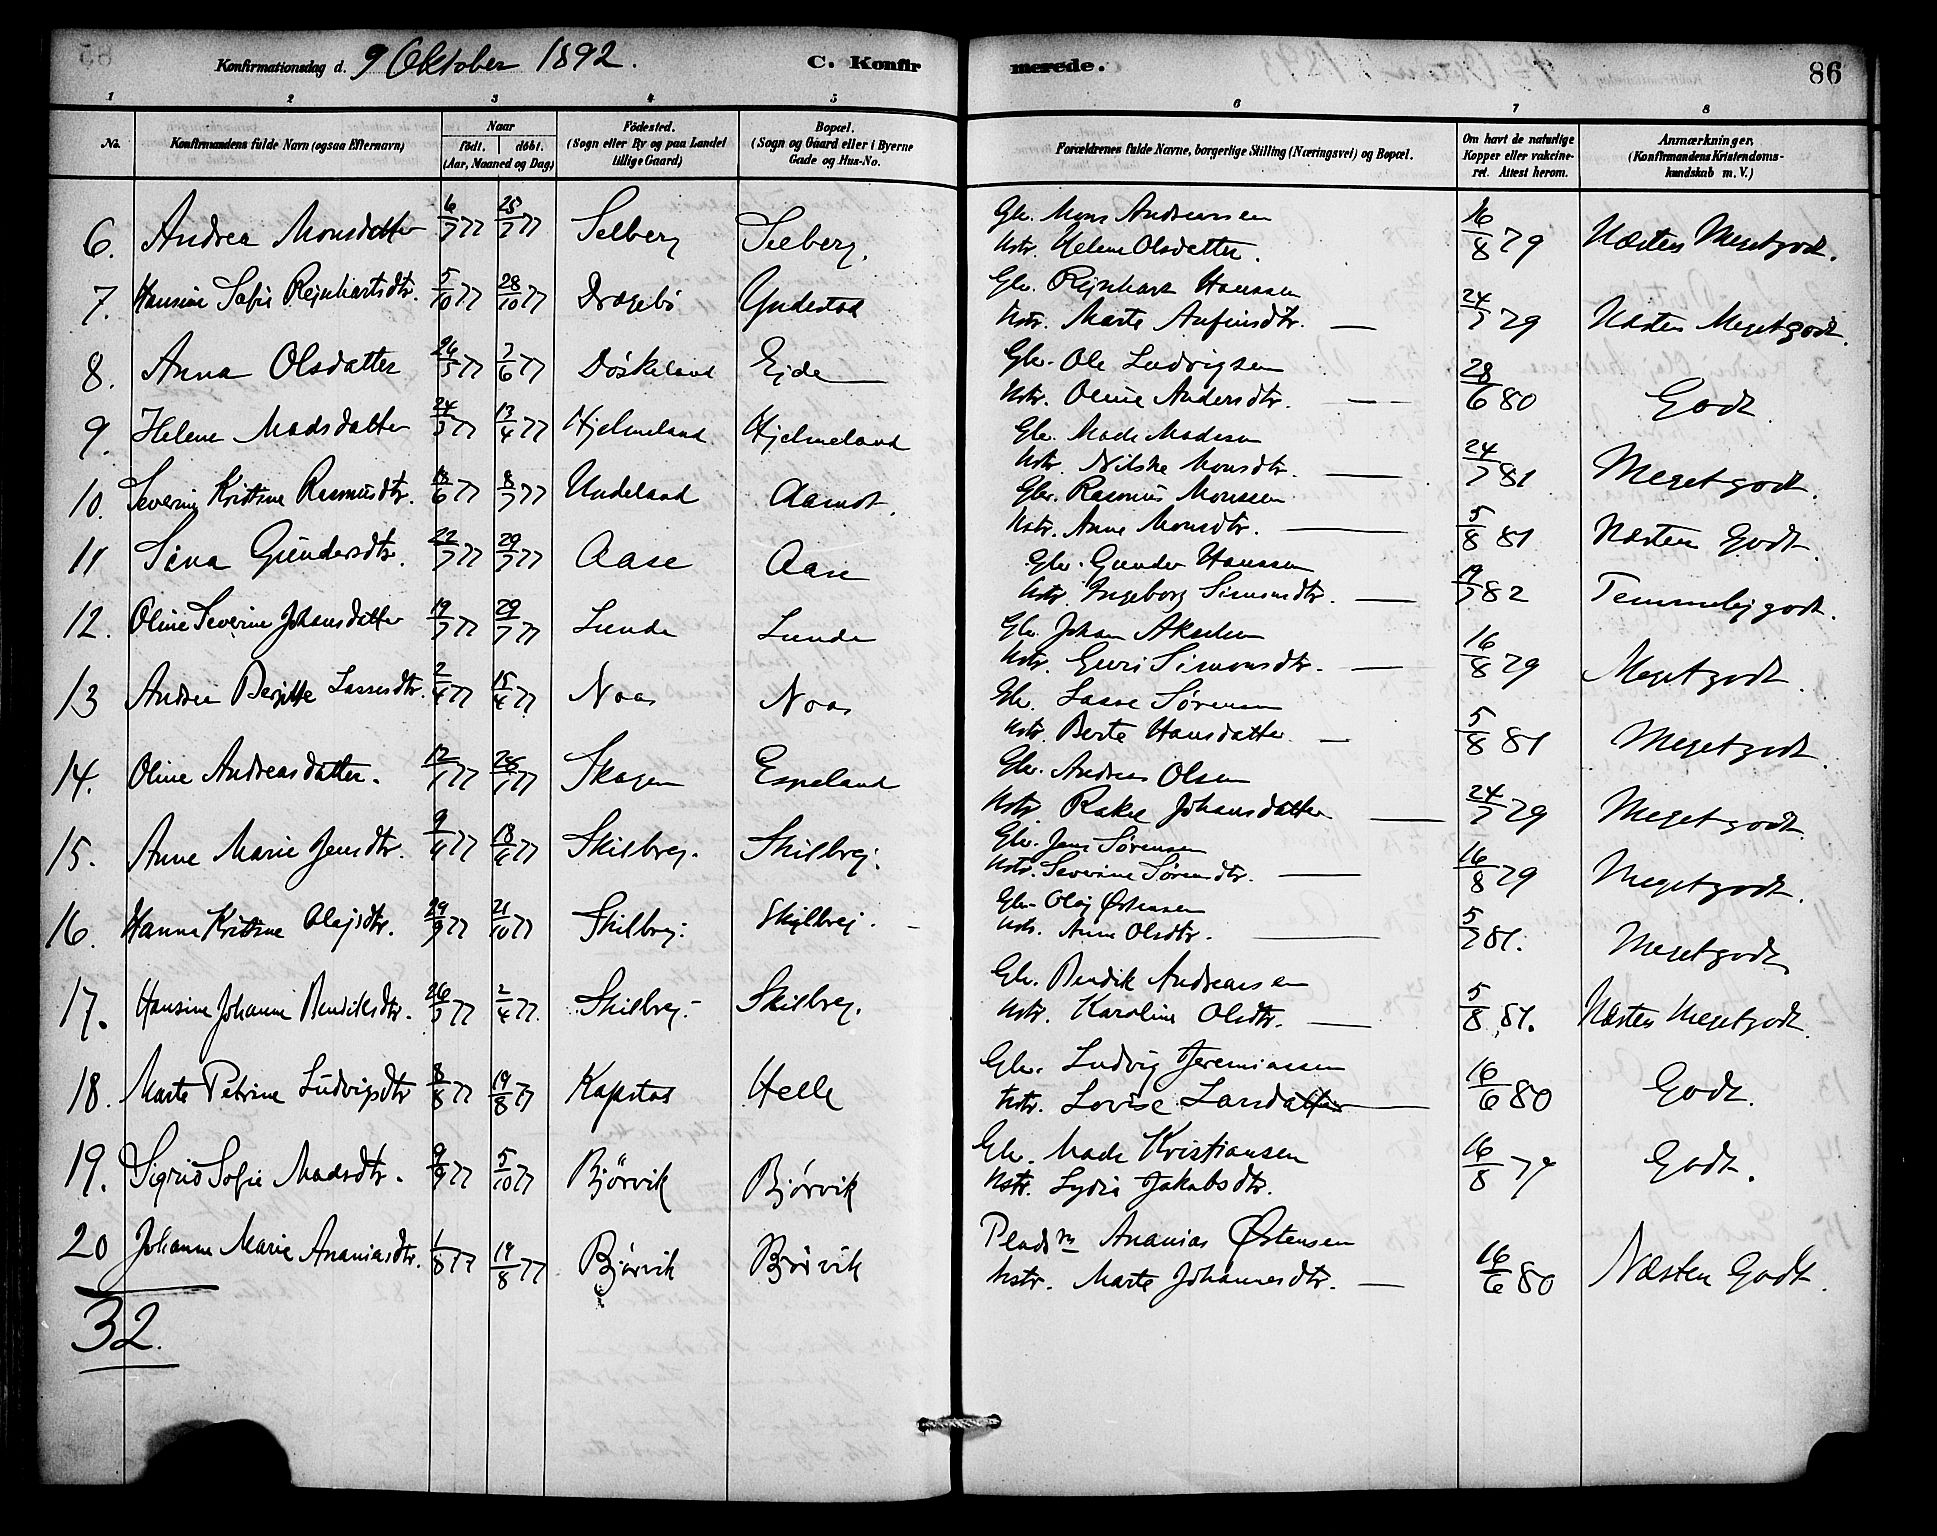 Konfirmationsdag d. 9 Oktober 1892. C. Konfirmerede. 86
1 2 3 4 5 6 7 8
No. Konfirmandens fulde Navn (ogsaa Efternavn) Naar født. døbt. (Aar, Maaned og Dag) Födested. (Sogn eller By og paa Landet tillige Gaard) Bopæl. (Sogn og Gaard eller i Byerne Gade og Hus-No. Forældrenes fulde Navne, borgerlige Stilling (Næringsvei) og Bopæl. Om havt de naturlige Kopper eller vakcineret. Attest herom. Anmærkninger. (Konfirmandens Kristendomskundskab m. V.)
6. Andrea Monsdatter 6/7 77 25/7 77 Selberg Seeberg. Gbr. Mons Andreassen
Hstr. Helene Olsdatter. 16/8 79 Næsten Meget godt.
7. Hansine Sofie Rejnhartsdtr. 5/10 77 28/10 77 Drægebø Yndestad Gbr. Rejnhart Hanssen
Hstr. Marte Anfinsdtr. — 24/7 79 Næsten Meget godt.
8. Anna Olsdatter 26/5 77 7/6 77 Døskeland Ejde Gbr. Ole Ludvigsen
Hstr. Oline Andersdtr. — 28/6 80 Godt
9. Helene Madsdatter 24/3 77 13/4 77 Hjelmeland Hjelmeland Gbr. Mads Madssen
Hstr. Nilske Monsdtr. — 24/7 81 Meget godt.
10. Severine Kristine Rasmusdtr. 18/6 77 8/7 77 Undeland Aamot. Gbr. Rasmus Monssen
Hstr. Anne Monsdtr. — 5/8 81 Næsten Godt.
11 Sina Gundersdtr. 22/7 77 29/7 77 Aase Aase Gbr. Gunder Hanssen
Hstr. Ingeborg Simonsdtr. — 19/7 82 Temmelig godt.
12. Oline Severine Johansdatter 19/7 77 29/7 77 Lunde Lunde Gbr. Johan Akselsen
Hstr. Guri Simonsdtr. — 16/8 79 Meget godt.
13 Andrea Berjitte Lassesdtr. 2/4 77 15/4 77 Noas Noas Gbr. Lasse Sørensen
Hstr. Berte Hansdatter — 5/8 81 Meget godt.
14. Oline Andreasdatter. 12/1 77 28/1 77 Skagen Espeland Gbr. Andreas Olsen
Hstr. Rakel Johansdatter — 24/7 79 Meget godt.
15. Anne Marie Jensdtr. 9/4 77 18/4 77 Skilbrej. Skilbrej. Gbr. Jens Sørensen
Hstr. Severine Sørensdtr. — 16/8 79 Meget godt.
16. Hanna Kristine Olajsdtr. 29/9 77 21/10 77 Skilbrej. Skilbrej. Gbr. Olaj Østensen
Hstr. Anne Olsdtr. — 5/7 81. Meget godt
17. Hansine Johanne Bendiksdtr. 26/3 77 2/4 77. Skilbrej Skilbrej. Gbr. Bendik Andreassen
Hstr. Karoline Olsdtr. — 5/8 81. Næsten Meget godt.
18. Marte Petrine Ludvigsdtr 8/8 77 19/8 77 Kapstad Helle Gbr. Ludvig Jeremiassen
Hstr. Lovise Larsdatter — 16/6 80 Godt.
19. Sigrid Sofie Madsdtr. 9/9 77 5/10 77 Bjørvik Bjørvik Gbr. Mads Kristiansen
Hstr. Lydia Jakobsdtr. 16/8 79 Godt.
20 Johanne Marie Ananiasdtr. 1/8 77 19/8 77 Bjørvik Bjørvik Pladsm Ananias Østensen
Hstr. Marte Johannesdtr. — 16/6 80 Næsten Godt.
32.